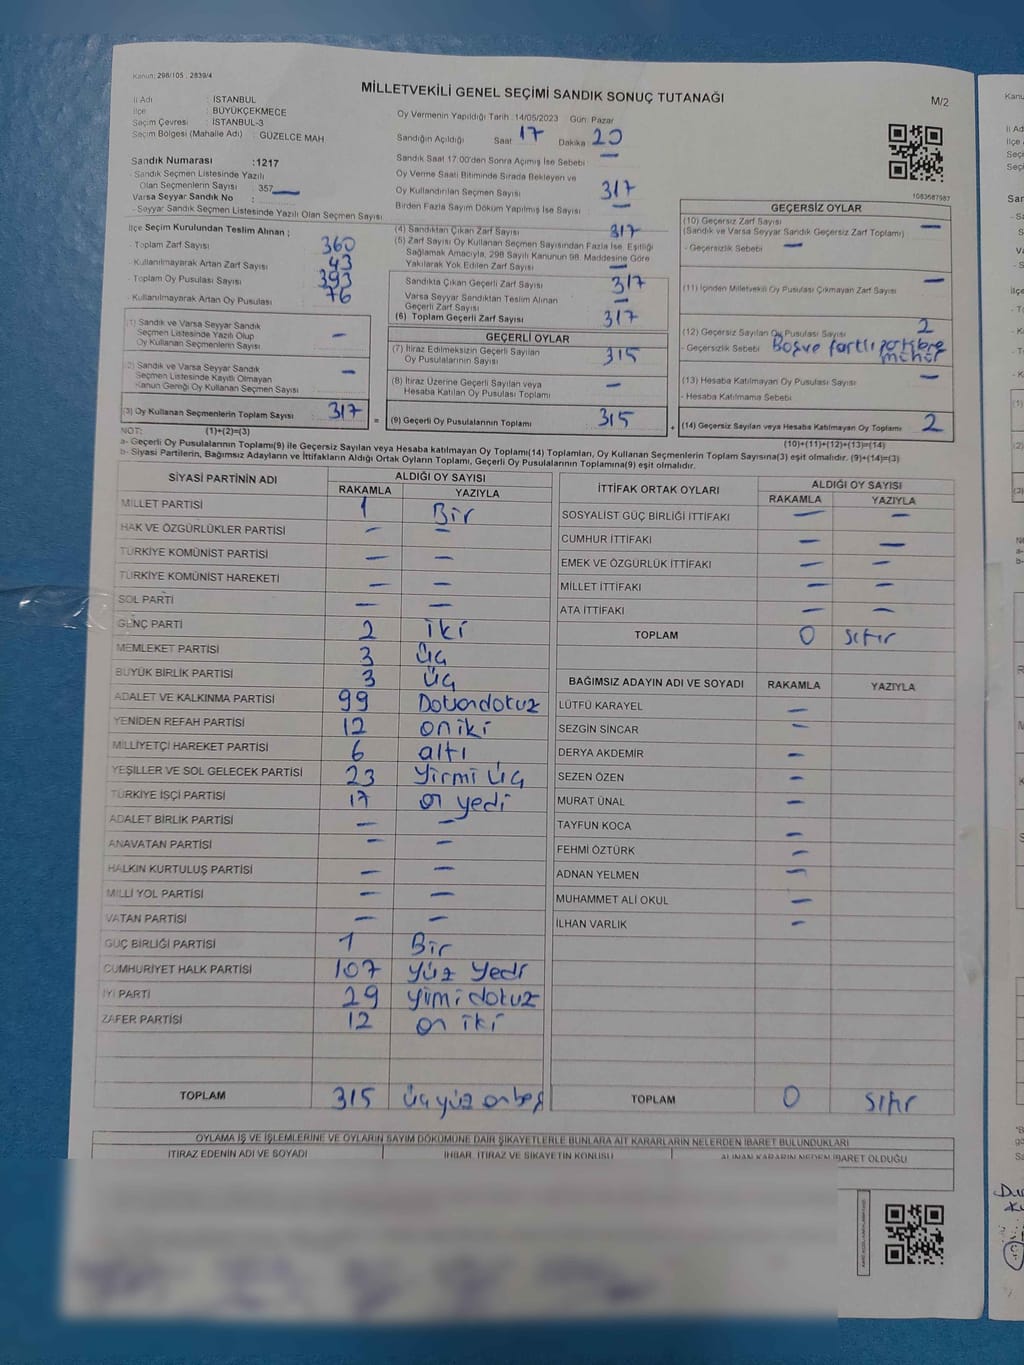 Kanun: 298/105 . 2839/4
MİLLETVEKİLİ GENEL SEÇİMİ SANDIK SONUÇ TUTANAĞI
M/2
İl Adı : İSTANBUL
İlçe : BÜYÜKÇEKMECE
Seçim Çevresi : İSTANBUL-3
Seçim Bölgesi (Mahalle Adı) : GÜZELCE MAH
Sandık Numarası :1217
- Sandık Seçmen Listesinde Yazılı
Olan Seçmenlerin Sayısı : 357
Varsa Seyyar Sandık No :
- Seyyar Sandık Seçmen Listesinde Yazılı Olan Seçmen Sayısı
Oy Vermenin Yapıldığı Tarih :14/05/2023 Gün: Pazar
Sandığın Açıldığı Saat 17 Dakika: 20
Sandık Saat 17:00'den Sonra Açılmış İse Sebebi —
Oy Verme Saati Bitiminde Sırada Bekleyen ve
Oy Kullandırılan Seçmen Sayısı 317
Birden Fazla Sayım Döküm Yapılmış İse Sayısı —
1083687987
İlçe Seçim Kurulundan Teslim Alınan ;
- Toplam Zarf Sayısı 360
- Kullanılmayarak Artan Zarf Sayısı 43
- Toplam Oy Pusulası Sayısı 393
- Kullanılmayarak Artan Oy Pusulası 76
(1) Sandık ve Varsa Seyyar Sandık
Seçmen Listesinde Yazılı Olup
Oy Kullanan Seçmenlerin Sayısı —
(2) Sandık ve Varsa Seyyar Sandık
Seçmen Listesinde Kayıtlı Olmayan
Kanun Gereği Oy Kullanan Seçmen Sayısı —
(3) Oy Kullanan Seçmenlerin Toplam Sayısı 317 =
(4) Sandıktan Çıkan Zarf Sayısı 317
(5) Zarf Sayısı Oy Kullanan Seçmen Sayısından Fazla İse, Eşitliği
Sağlamak Amacıyla, 298 Sayılı Kanunun 98. Maddesine Göre
Yakılarak Yok Edilen Zarf Sayısı —
Sandıkta Çıkan Geçerli Zarf Sayısı 317
Varsa Seyyar Sandıktan Teslim Alınan
Geçerli Zarf Sayısı —
(6) Toplam Geçerli Zarf Sayısı 317
GEÇERLİ OYLAR
(7) İtiraz Edilmeksizin Geçerli Sayılan
Oy Pusulalarının Sayısı 315
(8) İtiraz Üzerine Geçerli Sayılan veya
Hesaba Katılan Oy Pusulası Toplamı —
(9) Geçerli Oy Pusulalarının Toplamı 315 +
GEÇERSİZ OYLAR
(10) Geçersiz Zarf Sayısı
(Sandık ve Varsa Seyyar Sandık Geçersiz Zarf Toplamı) —
- Geçersizlik Sebebi —
(11) İçinden Milletvekili Oy Pusulası Çıkmayan Zarf Sayısı —
(12) Geçersiz Sayılan Oy Pusulası Sayısı 2
- Geçersizlik Sebebi Boş ve farklı partilere
mühür
(13) Hesaba Katılmayan Oy Pusulası Sayısı —
- Hesaba Katılmama Sebebi
(14) Geçersiz Sayılan veya Hesaba Katılmayan Oy Toplamı 2
NOT: (1)+(2)=(3) (10)+(11)+(12)+(13)=(14)
a- Geçerli Oy Pusulalarının Toplamı(9) ile Geçersiz Sayılan veya Hesaba Katılmayan Oy Toplamı(14) Toplamları, Oy Kullanan Seçmenlerin Toplam Sayısına(3) eşit olmalıdır. (9)+(14)=(3)
b- Siyasi Partilerin, Bağımsız Adayların ve İttifakların Aldığı Ortak Oyların Toplamı, Geçerli Oy Pusulalarının Toplamına(9) eşit olmalıdır.
SİYASİ PARTİNİN ADI ALDIĞI OY SAYISI
RAKAMLA YAZIYLA
MİLLET PARTİSİ 1 Bir
HAK VE ÖZGÜRLÜKLER PARTİSİ — —
TÜRKİYE KOMÜNİST PARTİSİ — —
TÜRKİYE KOMÜNİST HAREKETİ — —
SOL PARTİ — —
GENÇ PARTİ 2 iki
MEMLEKET PARTİSİ 3 üç
BÜYÜK BİRLİK PARTİSİ 3 üç
ADALET VE KALKINMA PARTİSİ 99 Doksandokuz
YENİDEN REFAH PARTİSİ 12 oniki
MİLLİYETÇİ HAREKET PARTİSİ 6 altı
YEŞİLLER VE SOL GELECEK PARTİSİ 23 yirmi üç
TÜRKİYE İŞÇİ PARTİSİ 17 on yedi
ADALET BİRLİK PARTİSİ — —
ANAVATAN PARTİSİ — —
HALKIN KURTULUŞ PARTİSİ — —
MİLLİ YOL PARTİSİ — —
VATAN PARTİSİ — —
GÜÇ BİRLİĞİ PARTİSİ 1 Bir
CUMHURİYET HALK PARTİSİ 107 yüz yedi
İYİ PARTİ 29 yirmi dokuz
ZAFER PARTİSİ 12 on iki
TOPLAM 315 üçyüz onbeş
İTTİFAK ORTAK OYLARI ALDIĞI OY SAYISI
RAKAMLA YAZIYLA
SOSYALİST GÜÇ BİRLİĞİ İTTİFAKI — —
CUMHUR İTTİFAKI — —
EMEK VE ÖZGÜRLÜK İTTİFAKI — —
MİLLET İTTİFAKI — —
ATA İTTİFAKI — —
TOPLAM 0 sıfır
BAĞIMSIZ ADAYIN ADI VE SOYADI RAKAMLA YAZIYLA
LÜTFÜ KARAYEL —
SEZGİN SİNCAR —
DERYA AKDEMİR —
SEZEN ÖZEN —
MURAT ÜNAL —
TAYFUN KOCA —
FEHMİ ÖZTÜRK —
ADNAN YELMEN —
MUHAMMET ALİ OKUL —
İLHAN VARLIK —
TOPLAM 0 sıfır
OYLAMA İŞ VE İŞLEMLERİNE VE OYLARIN SAYIM DÖKÜMÜNE DAİR ŞİKAYETLERLE BUNLARA AİT KARARLARIN NELERDEN İBARET BULUNDUKLARI
İTİRAZ EDENİN ADI VE SOYADI İHBAR, İTİRAZ VE ŞİKAYETİN KONUSU ALINAN KARARIN NEDEN İBARET OLDUĞU